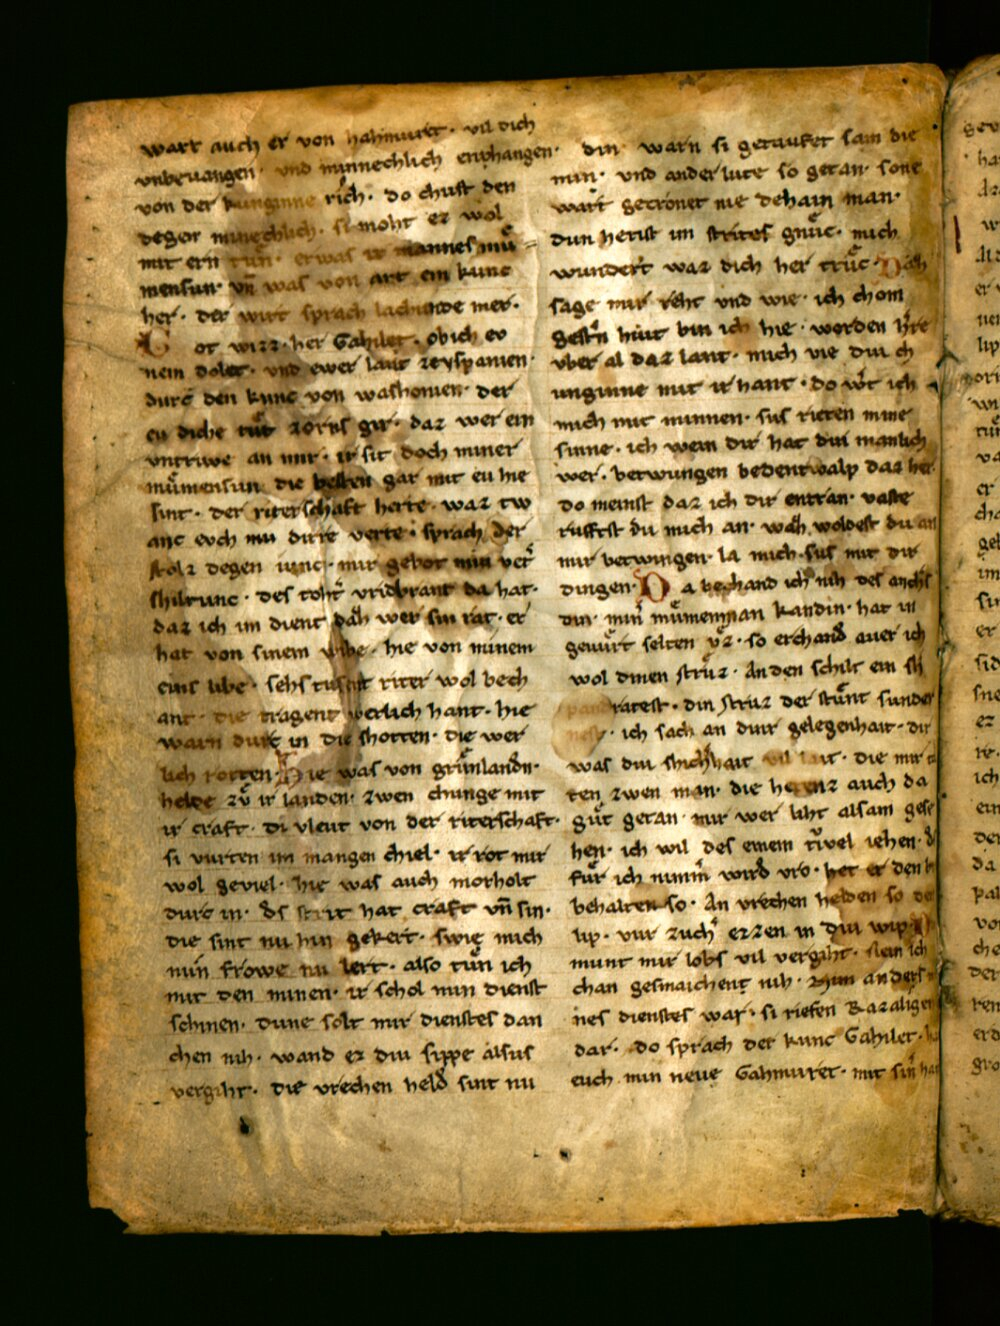 wart auch er von hahmuret · vil dich
vnbeuangen · vnd minnechlich enphangen ·
von der kunginne rich · do chust den
degen minechlich · si moht ez wol
mit ern tun · er was ir mannes mů
mensun · vn̄ was von art ein kunc
her · der wirt sprach lachende mer ·
Got wizz · her Gahilet · ob ich ev
nem dolet · vnd ewer lant zeyspanien ·
durc den kunc von washonien · der
eu diche tůt zorns gir · daz wer ein
vntriwe an mir · ir sit doch miner
můmensun · die besten gar mit eu hie
sint · der riterschaft herte · waz tw
anc evch mu dirre verte · sprach der
stolz degen iunc · mir gebot min vet̾
shiltunc · des toht̾ vridbrant da hat ·
daz ich im dient dah wer sin rat · er
hat von sinem wibe · hie von minem
eins libe · sehs tusnt riter wol bech
ant · die tragent werlich hant · hie
warn durc in die shotten · die wer
lich rotten · Hie was von grůnlandn̄ ·
helde zů ir landen · zwen chunge mit
ir craft · di vleut von der riterschaft ·
si vurten im mangen chiel · ir rot mir
wol geviel · hie was auch morholt
durc in · ds strit hat craft vn̄ sin ·
die sint nu hin gekert · swie mich
min frowe nu lert · also tůn ich
mit den minen · ir schol min dienst
schinen · dune solt mir dienstes dan
chen nih · wand ez diu sippe alsus
vergiht · die vrechen held sint nu
din · warn si getaufet sam die
min · vnd ander lute so getan · sone
wart gecronet nie dehain man ·
dun hetist im strites gnůc · mich
wundert waz dich her trůc · Dah
sage mir reht vnd wie · ich chom
gestn̄ hiut bin ich hie · worden h̾re
vber al daz lant · mich vie diu ch
unginne mit ir hant · do w̾t ich
mich mit minnen · sus rieten mine
sinne · ich wein dir hat din manlich
wer · betwungen bedenthalp daz her
do meinst daz ich dir entran · vaste
ruffist du mich an · wah woldest du an
mir betwingen · la mich sus mit dir
dingen · Da bechand ich nih des anch̾s
din · min̄ můmen man kandin · hat in
gewůrt selten v̾z · so erchand auer ich
wol dinen strůz · An den schilt ein sh
ratest · din struz der stůnt sunder
nest · ich sach an diur gelegenhait · dir
was diu shichhait vil lait · die mir
ten zwen man · die hetenz auch da
gůt getan · mir wer liht alsam gese
hen · ich wil des einem tivel iehen · d
fůr ich nimm̾ wird vro · het er den
behalten so · An vrechen helden so
lip · vur zuch̾ ezzen in diu wip
munt mir lobs vil vergiht · sein ich
chan gesmaichent nih · min anders
nes dienstes war · si riefen Razalige
dar · do sprach der kunc Gahilet ·
euch min neue Gahmuret · mit sin̄